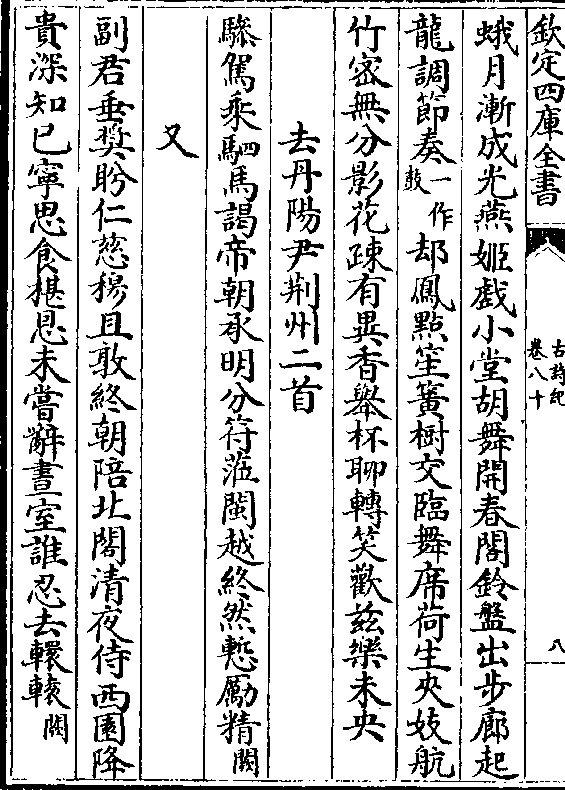 欽定四庫全書
古詩紀
卷八十
八
蛾月漸成光燕姬戲小堂胡舞開春閣鈴盤出步廊起
龍調節奏一作鼓却鳳點笙簧樹交臨舞席荷生夾妓航
竹密無分影花踈有異香舉杯聊轉笑歡茲樂未央
去丹陽尹荆州二首
驂駕乘駟馬謁帝朝承明分符蒞閩越終然慙勵精闕
又
副君垂奬盻仁慈穆且敦終朝陪北閣清夜侍西園降
貴深知已寧思食椹恩未嘗辭晝室誰忍去轘轅闕